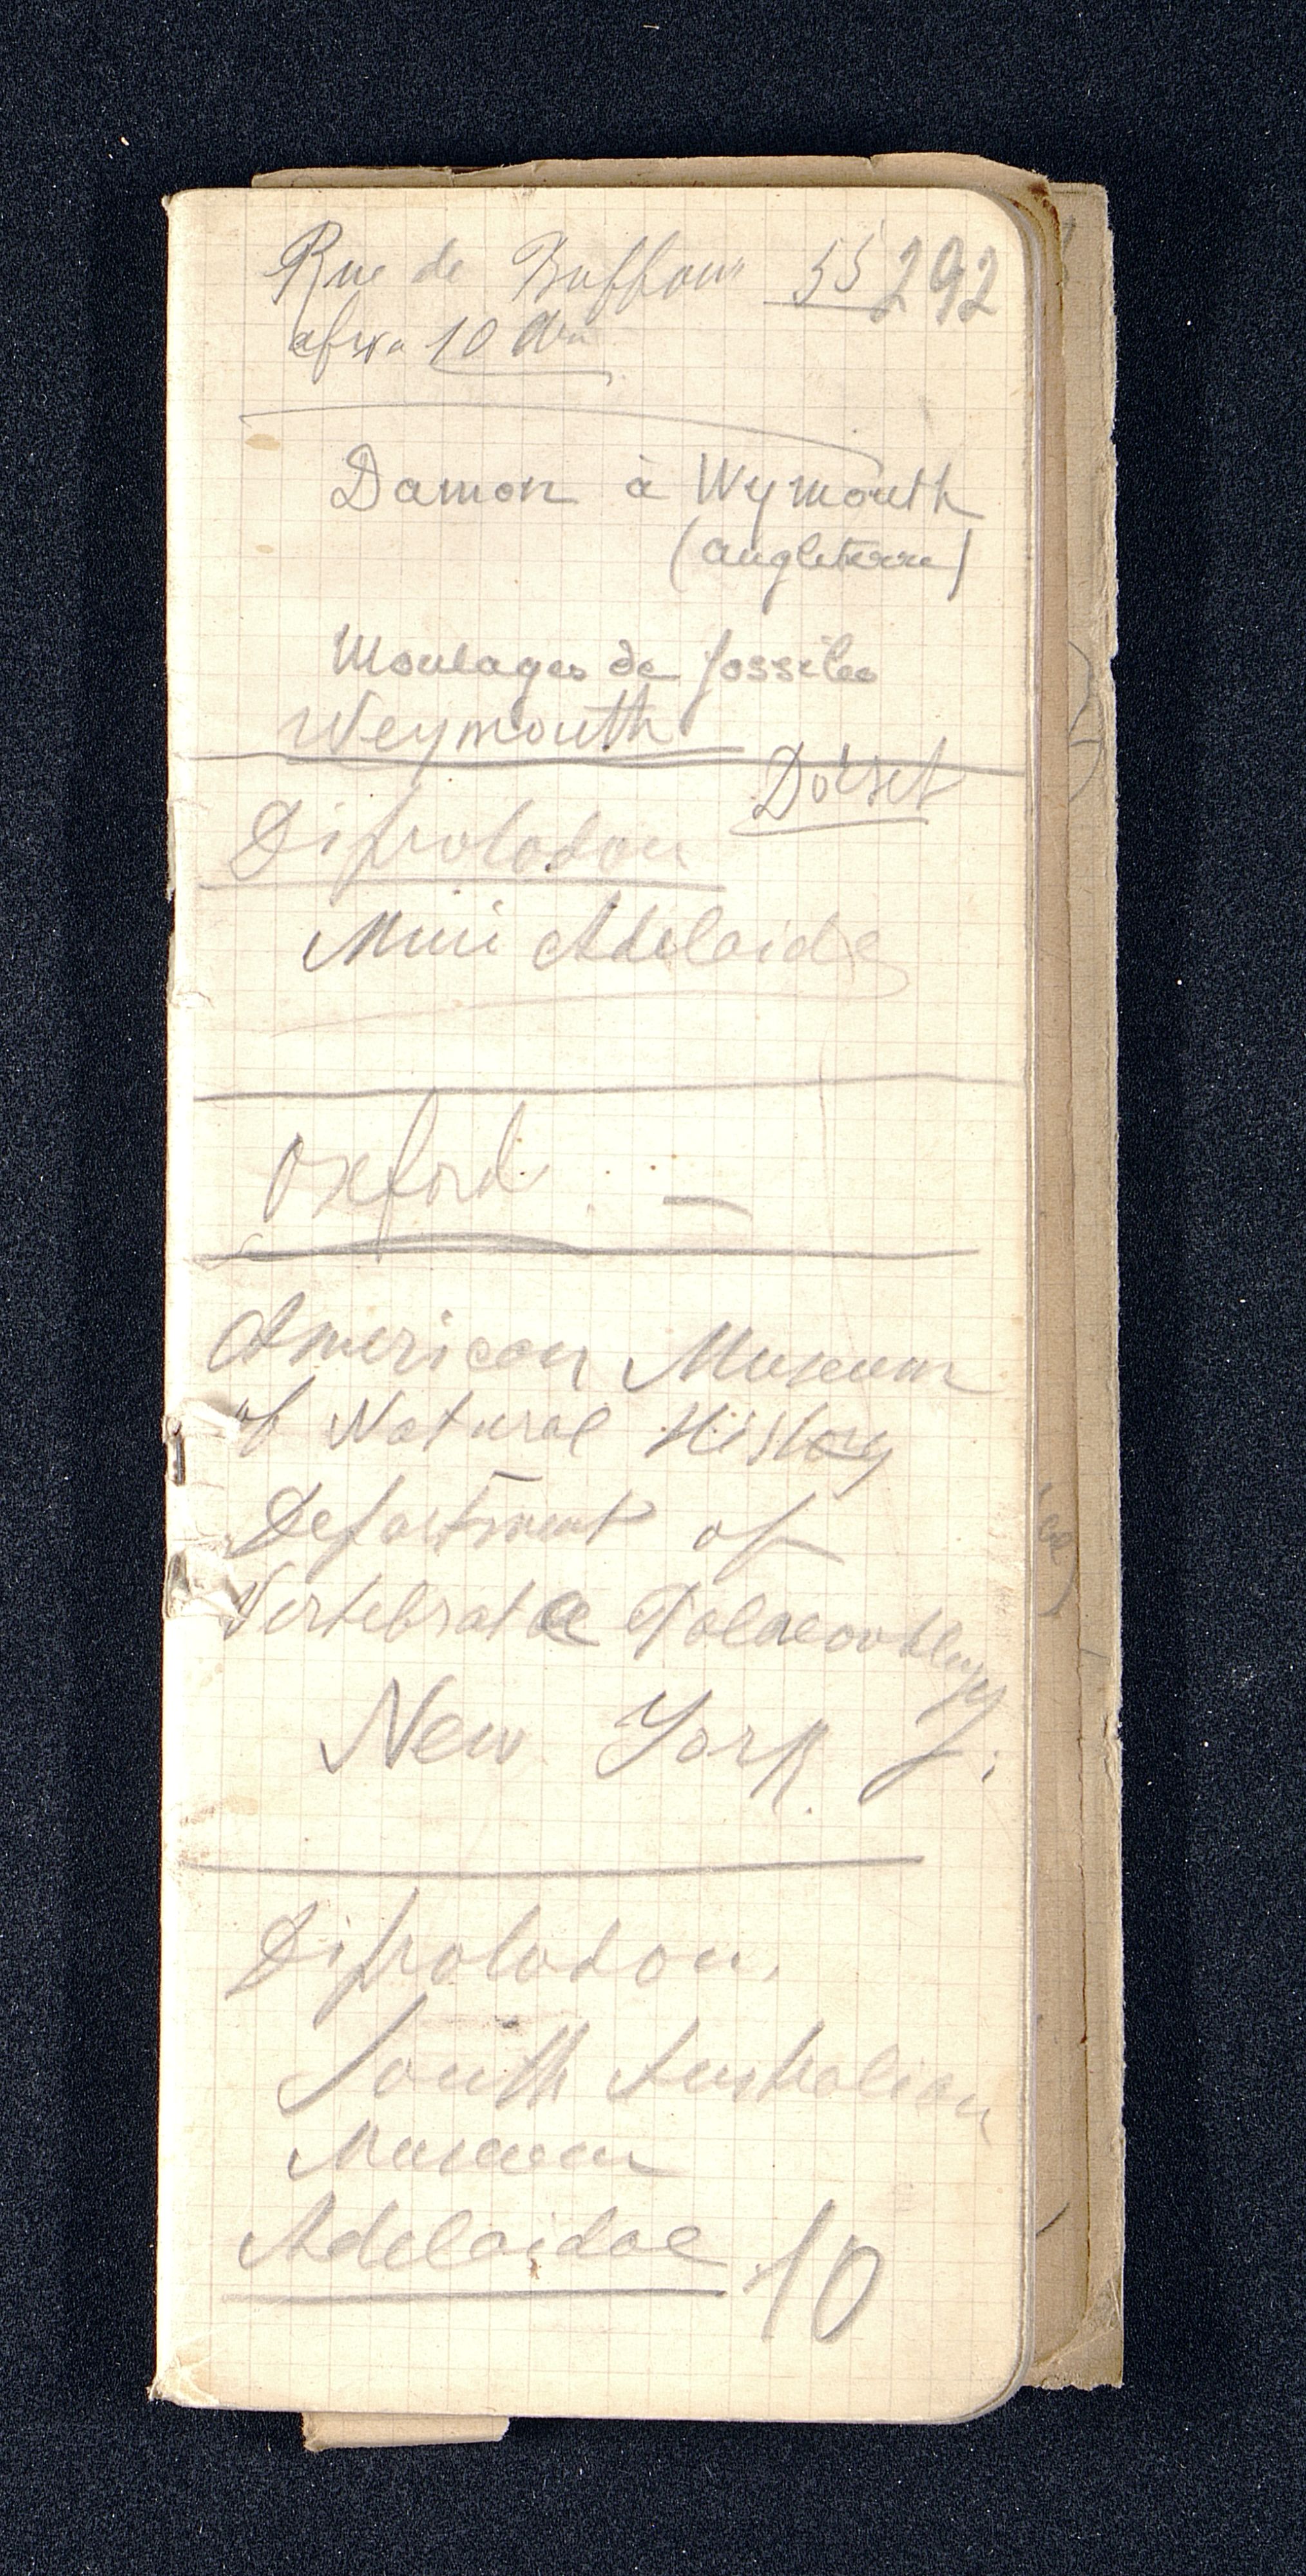 Rue de Buffon 55 292
10
Damon à Wymouth
(Angleterre)
Moulages de fossiles
Weymouth
Dorset
Diprotodon
Adelaide
Oxford —
American Museum
of Natural History
Department of
Vertebrate Palaeontology
New York.
Diprotodon.
South Australian
Museum
Adelaidae 10